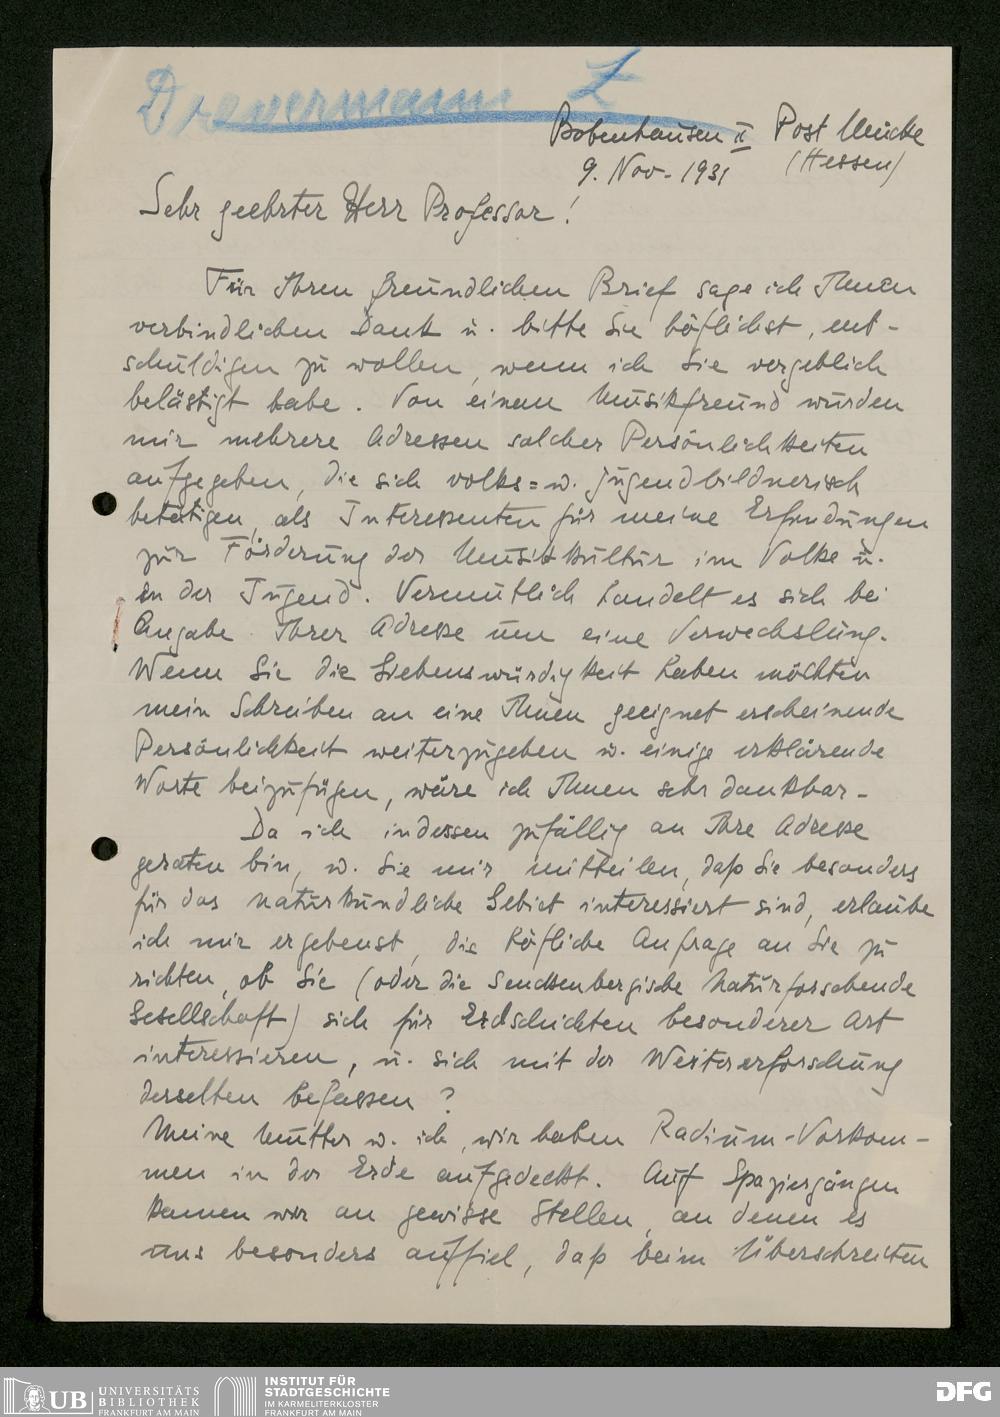 Drevermann Z
Bobenhausen II Post Mücke
9. Nov. 1931 (Hessen)
Sehr geehrter Herr Professor!
Für Ihren freundlichen Brief sage ich Ihnen
verbindlichen Dank u. bitte Sie höflichst, ent-
schuldigen zu wollen, wenn ich Sie vergeblich
belästigt habe. Von einem Musikfreund wurden
mir mehrere Adressen solcher Persönlichkeiten
aufgegeben, die sich volks= u. jugendbildnerisch
betätigen, als Interessenten für meine Erfindungen
zur Förderung der Musikkultur im Volke u.
in der Jugend. Vermutlich handelt es sich bei
Angabe Ihrer Adresse um eine Verwechslung.
Wenn Sie die Liebenswürdigkeit haben möchten
mein Schreiben an eine Ihnen geeignet erscheinende
Persönlichkeit weiterzugeben u. einige erklärende
Worte beizufügen, wäre ich Ihnen sehr dankbar.
Da ich indessen zufällig an Ihre Adresse
geraten bin, u. Sie mir mitteilen, daß Sie besonders
für das naturkundliche Gebiet interessiert sind, erlaube
ich mir ergebenst, die höfliche Anfrage an Sie zu
richten, ob Sie (oder die Senckenbergische Naturforschende
Gesellschaft) sich für Erdschichten besonderer Art
interessieren, u. sich mit der Weitererforschung
derselben befassen?
Meine Mutter u. ich, wir haben Radium-Vorkom-
men in der Erde aufgedeckt. Auf Spaziergängen
kamen wir an gewisse Stellen, an denen es
uns besonders auffiel, daß beim Überschreiten
UB UNIVERSITÄTS
BIBLIOTHEK
FRANKFURT AM MAIN
INSTITUT FÜR
STADTGESCHICHTE
IM KARMELITERKLOSTER
FRANKFURT AM MAIN
DFG